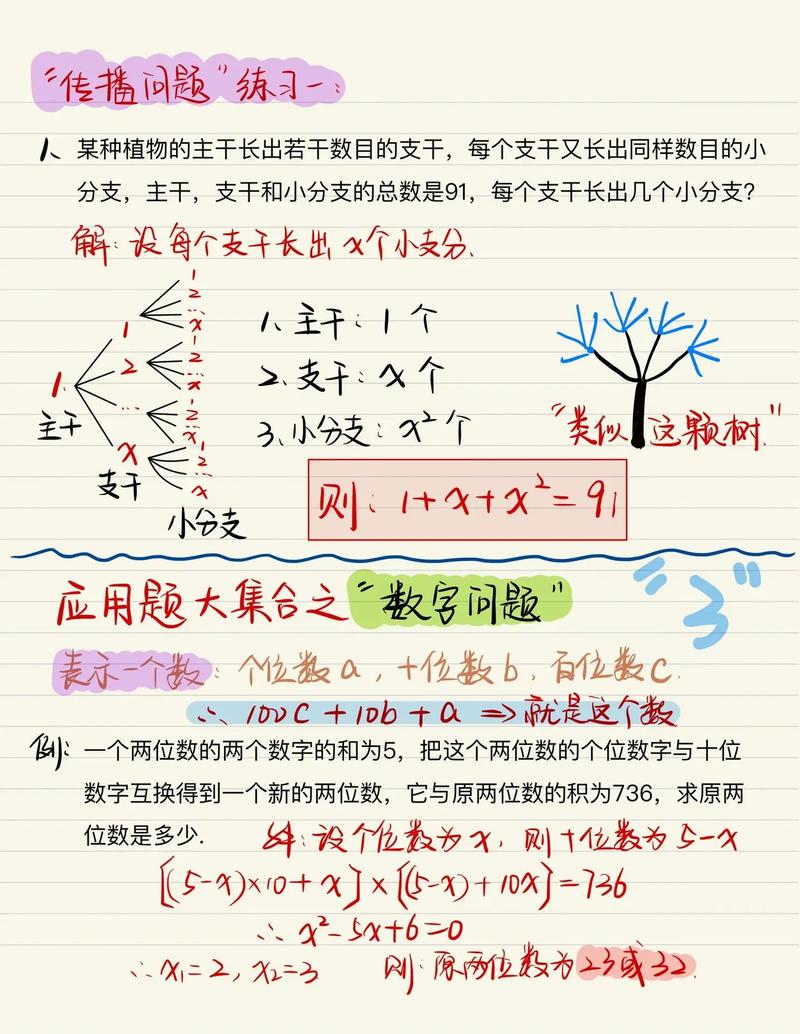 “传播问题”练习一：
1、某种植物的主干长出若干数目的支干，每个支干又长出同样数目的小
分支，主干，支干和小分支的总数是91，每个支干长出几个小分支？
解：设每个支干长出x个小支分.
1
2
...
x
1
2
...
x
1
2
...
x
1
2
...
x
1
2
...
x
1.
主干
支干
小分支
1、主干：1个
2、支干：x个
3、小分支：x²个
“类似这颗树.”
则：1+x+x²=91
应用题大集合之“数字问题”
“3”
表示一个数：个位数a，十位数b，百位数c.
∴ 100c+10b+a ⇒ 就是这个数
例：一个两位数的两个数字的和为5，把这个两位数的个位数字与十位
数字互换得到一个新的两位数，它与原两位数的积为736，求原两
位数是多少.
解：设个位数为x，则十位数为5-x
[(5-x)×10+x]×[(5-x)+10x]=736
∴ x²-5x+6=0
∴ x₁=2，x₂=3 则：原两位数为23或32.